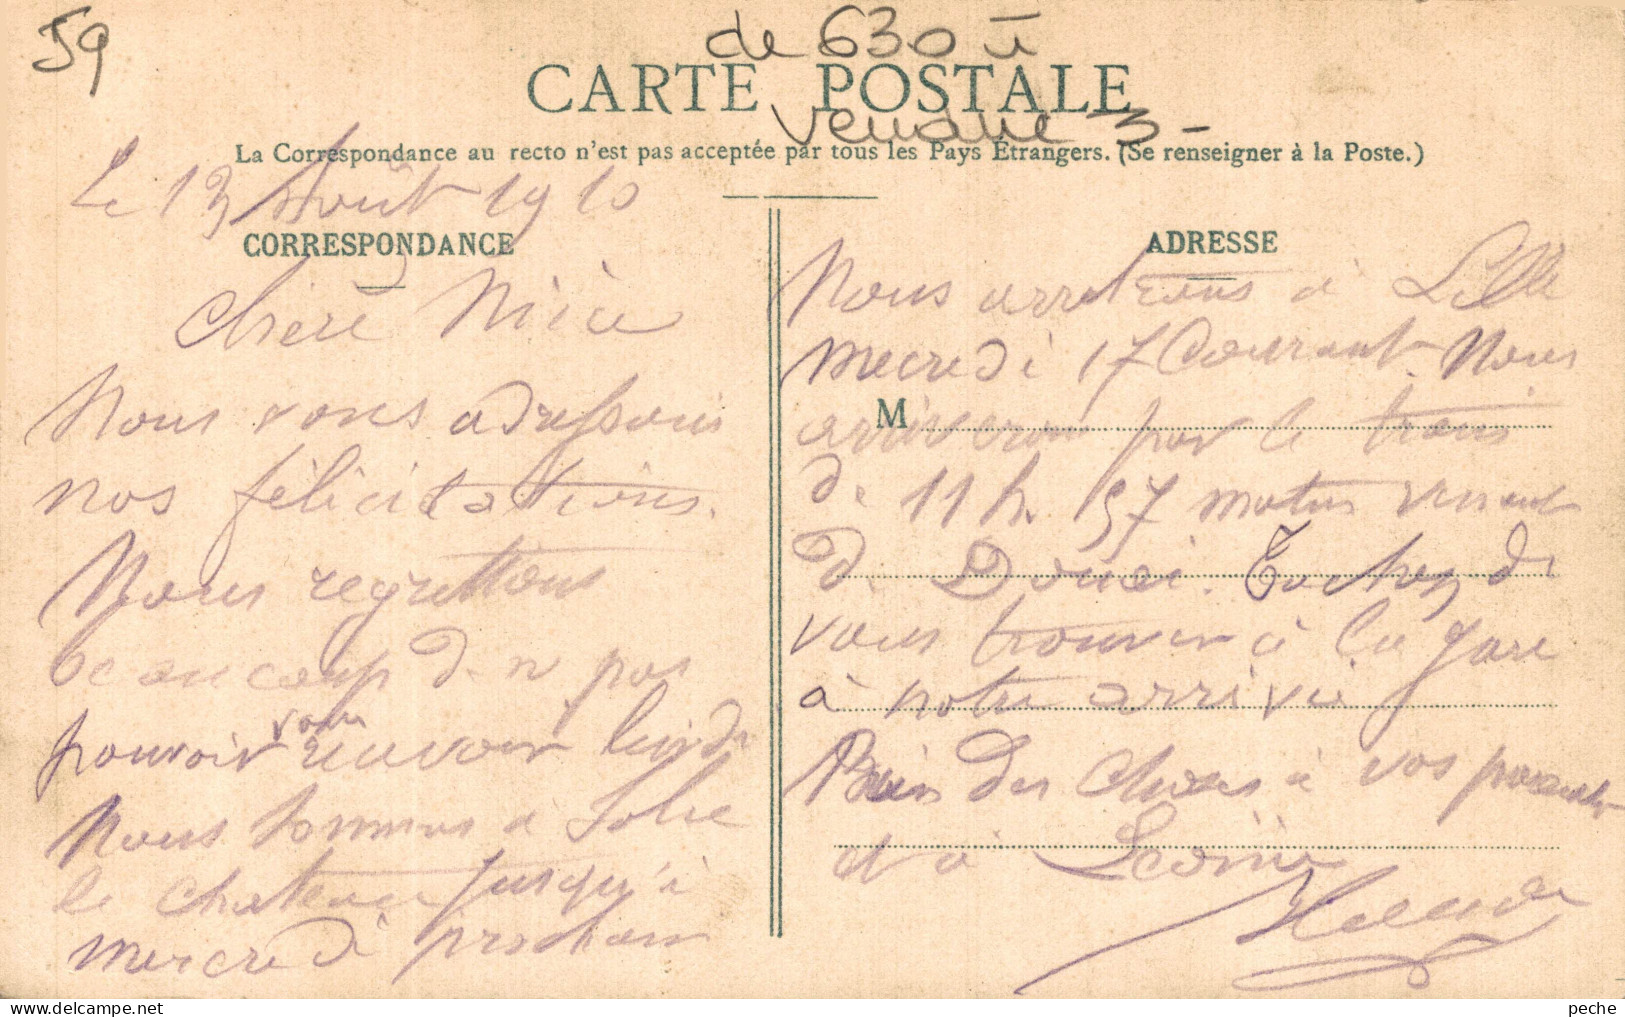 59
de 630 à
CARTE POSTALE
3-
La Correspondance au recto n'est pas acceptée par tous les Pays Étrangers. (Se renseigner à la Poste.)
Le 13 Août 1910
CORRESPONDANCE
Chère Nièce
Nous vous adressons
nos félicitations.
Nous regrettons
beaucoup de n pas
pouvoir vous revoir lundi
Nous sommes à
le chateau jusqu'à
mercredi prochain
ADRESSE
Nous arretrons à Lille
mecredi 17 Courant. Nous
M
arriveron par le train
de 11 h. 57 matin venant
de Douai. Tachez de
vous trouver à la gare
à notre arrivée
Bien des choses à vos parents
et à Léonie